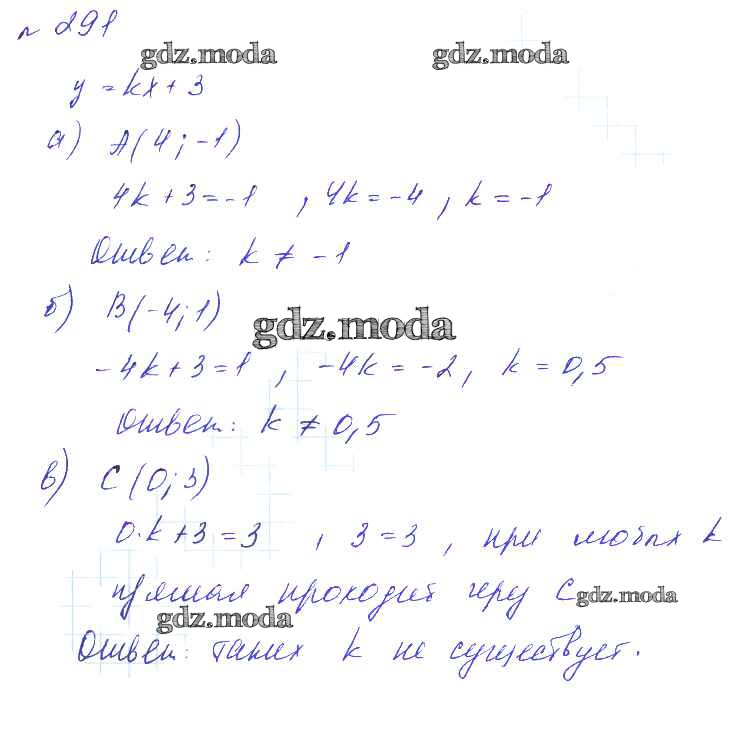 № 291
gdz.moda gdz.moda
y = kx + 3
а) A(4; -1)
4k + 3 = -1 , 4k = -4 , k = -1
Ответ: k ≠ -1
б) B(-4; 1)
gdz.moda
-4k + 3 = 1 , -4k = -2, k = 0,5
Ответ: k ≠ 0,5
в) C(0; 3)
0·k + 3 = 3 , 3 = 3 , при любых k
прямая проходит через C
gdz.moda
gdz.moda
Ответ: таких k не существует.